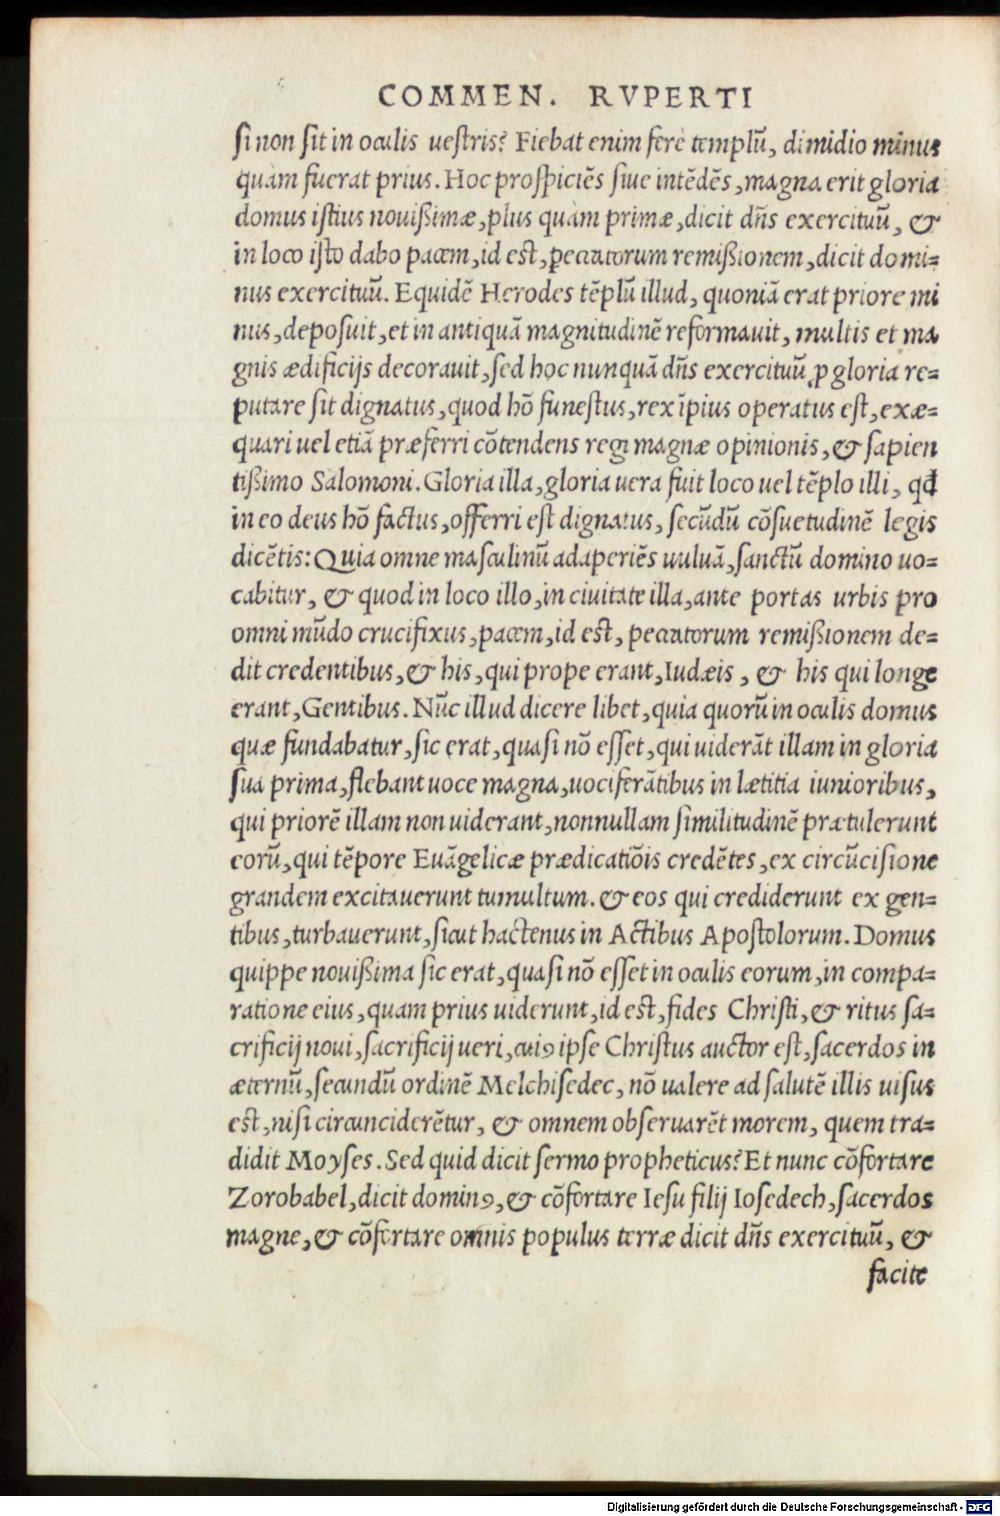 COMMEN. RVPERTI
si non sit in oculis uestris? Fiebat enim ferè templũ, dimidio minus
quàm fuerat prius. Hoc prospiciẽs siue intẽdẽs, magna erit gloria
domus istius nouißimæ, plus quàm primæ, dicit dñs exercituũ, &
in loco isto dabo pacem, id est, peccatorum remißionem, dicit domi=
nus exercituũ. Equidẽ Herodes tẽplũ illud, quoniã erat priore mi
nus, deposuit, et in antiquã magnitudinẽ reformauit, multis et ma
gnis ædificijs decorauit, sed hoc nunquã dñs exercituũ, ꝓ gloria re=
putare sit dignatus, quod hõ funestus, rex ĩpius operatus est, exæ=
quari uel etiã præferri cõtendens regi magnæ opinionis, & sapien
tißimo Salomoni. Gloria illa, gloria uera fuit loco uel tẽplo illi, qđ
in eo deus hõ factus, offerri est dignatus, secũdũ cõsuetudinẽ legis
dicẽtis: Quia omne masculinũ adaperiẽs uuluã, sanctũ domino uo=
cabitur, & quod in loco illo, in ciuitate illa, ante portas urbis pro
omni mũdo crucifixus, pacem, id est, peccatorum remißionem de=
dit credentibus, & his, qui prope erant, Iudæis, & his qui longe
erant, Gentibus. Nũc illud dicere libet, quia quorũ in oculis domus
quæ fundabatur, sic erat, quasi nõ esset, qui uiderãt illam in gloria
sua prima, flebant uoce magna, uociferãtibus in lætitia iunioribus,
qui priorẽ illam non uiderant, nonnullam similitudinẽ prætulerunt
eorũ, qui tẽpore Euãgelicæ prædicatiõis credẽtes, ex circũcisione
grandem excitauerunt tumultum. & eos qui crediderunt ex gen=
tibus, turbauerunt, sicut hactenus in Actibus Apostolorum. Domus
quippe nouißima sic erat, quasi nõ esset in oculis eorum, in compa=
ratione eius, quam prius uiderunt, id est, fides Christi, & ritus sa=
crificij noui, sacrificij ueri, cuiꝰ ipse Christus auctor est, sacerdos in
æternũ, secundũ ordinẽ Melchisedec, nõ ualere ad salutẽ illis uisus
est, nisi circunciderẽtur, & omnem obseruarẽt morem, quem tra=
didit Moyses. Sed quid dicit sermo propheticus? Et nunc cõfortare
Zorobabel, dicit dominꝰ, & cõfortare Iesu filij Iosedech, sacerdos
magne, & cõfortare omnis populus terræ dicit dñs exercituũ, &
facite
Digitalisierung gefördert durch die Deutsche Forschungsgemeinschaft - DFG